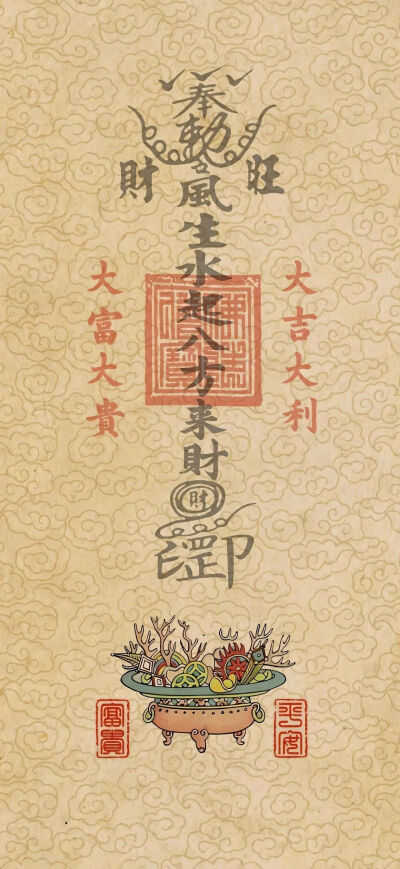 旺財
大吉大利
奉勅
風生水起八方来財
財
大富大貴
平安
富貴